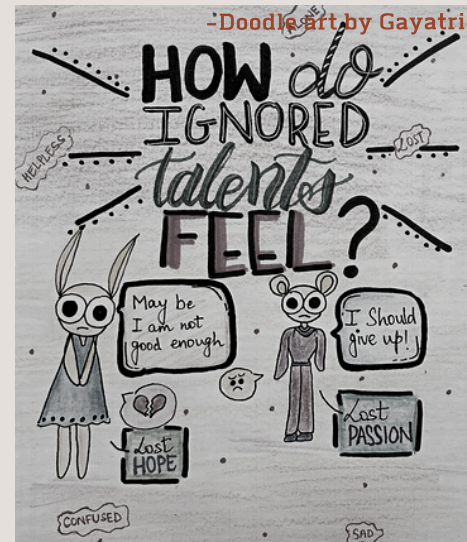 -Doodle art by Gayatri
ALONE
HOW do
IGNORED
talents
FEEL?
HELPLESS
LOST
May be
I am not
good enough
I Should
give up!
Lost
HOPE
Lost
PASSION
CONFUSED
SAD